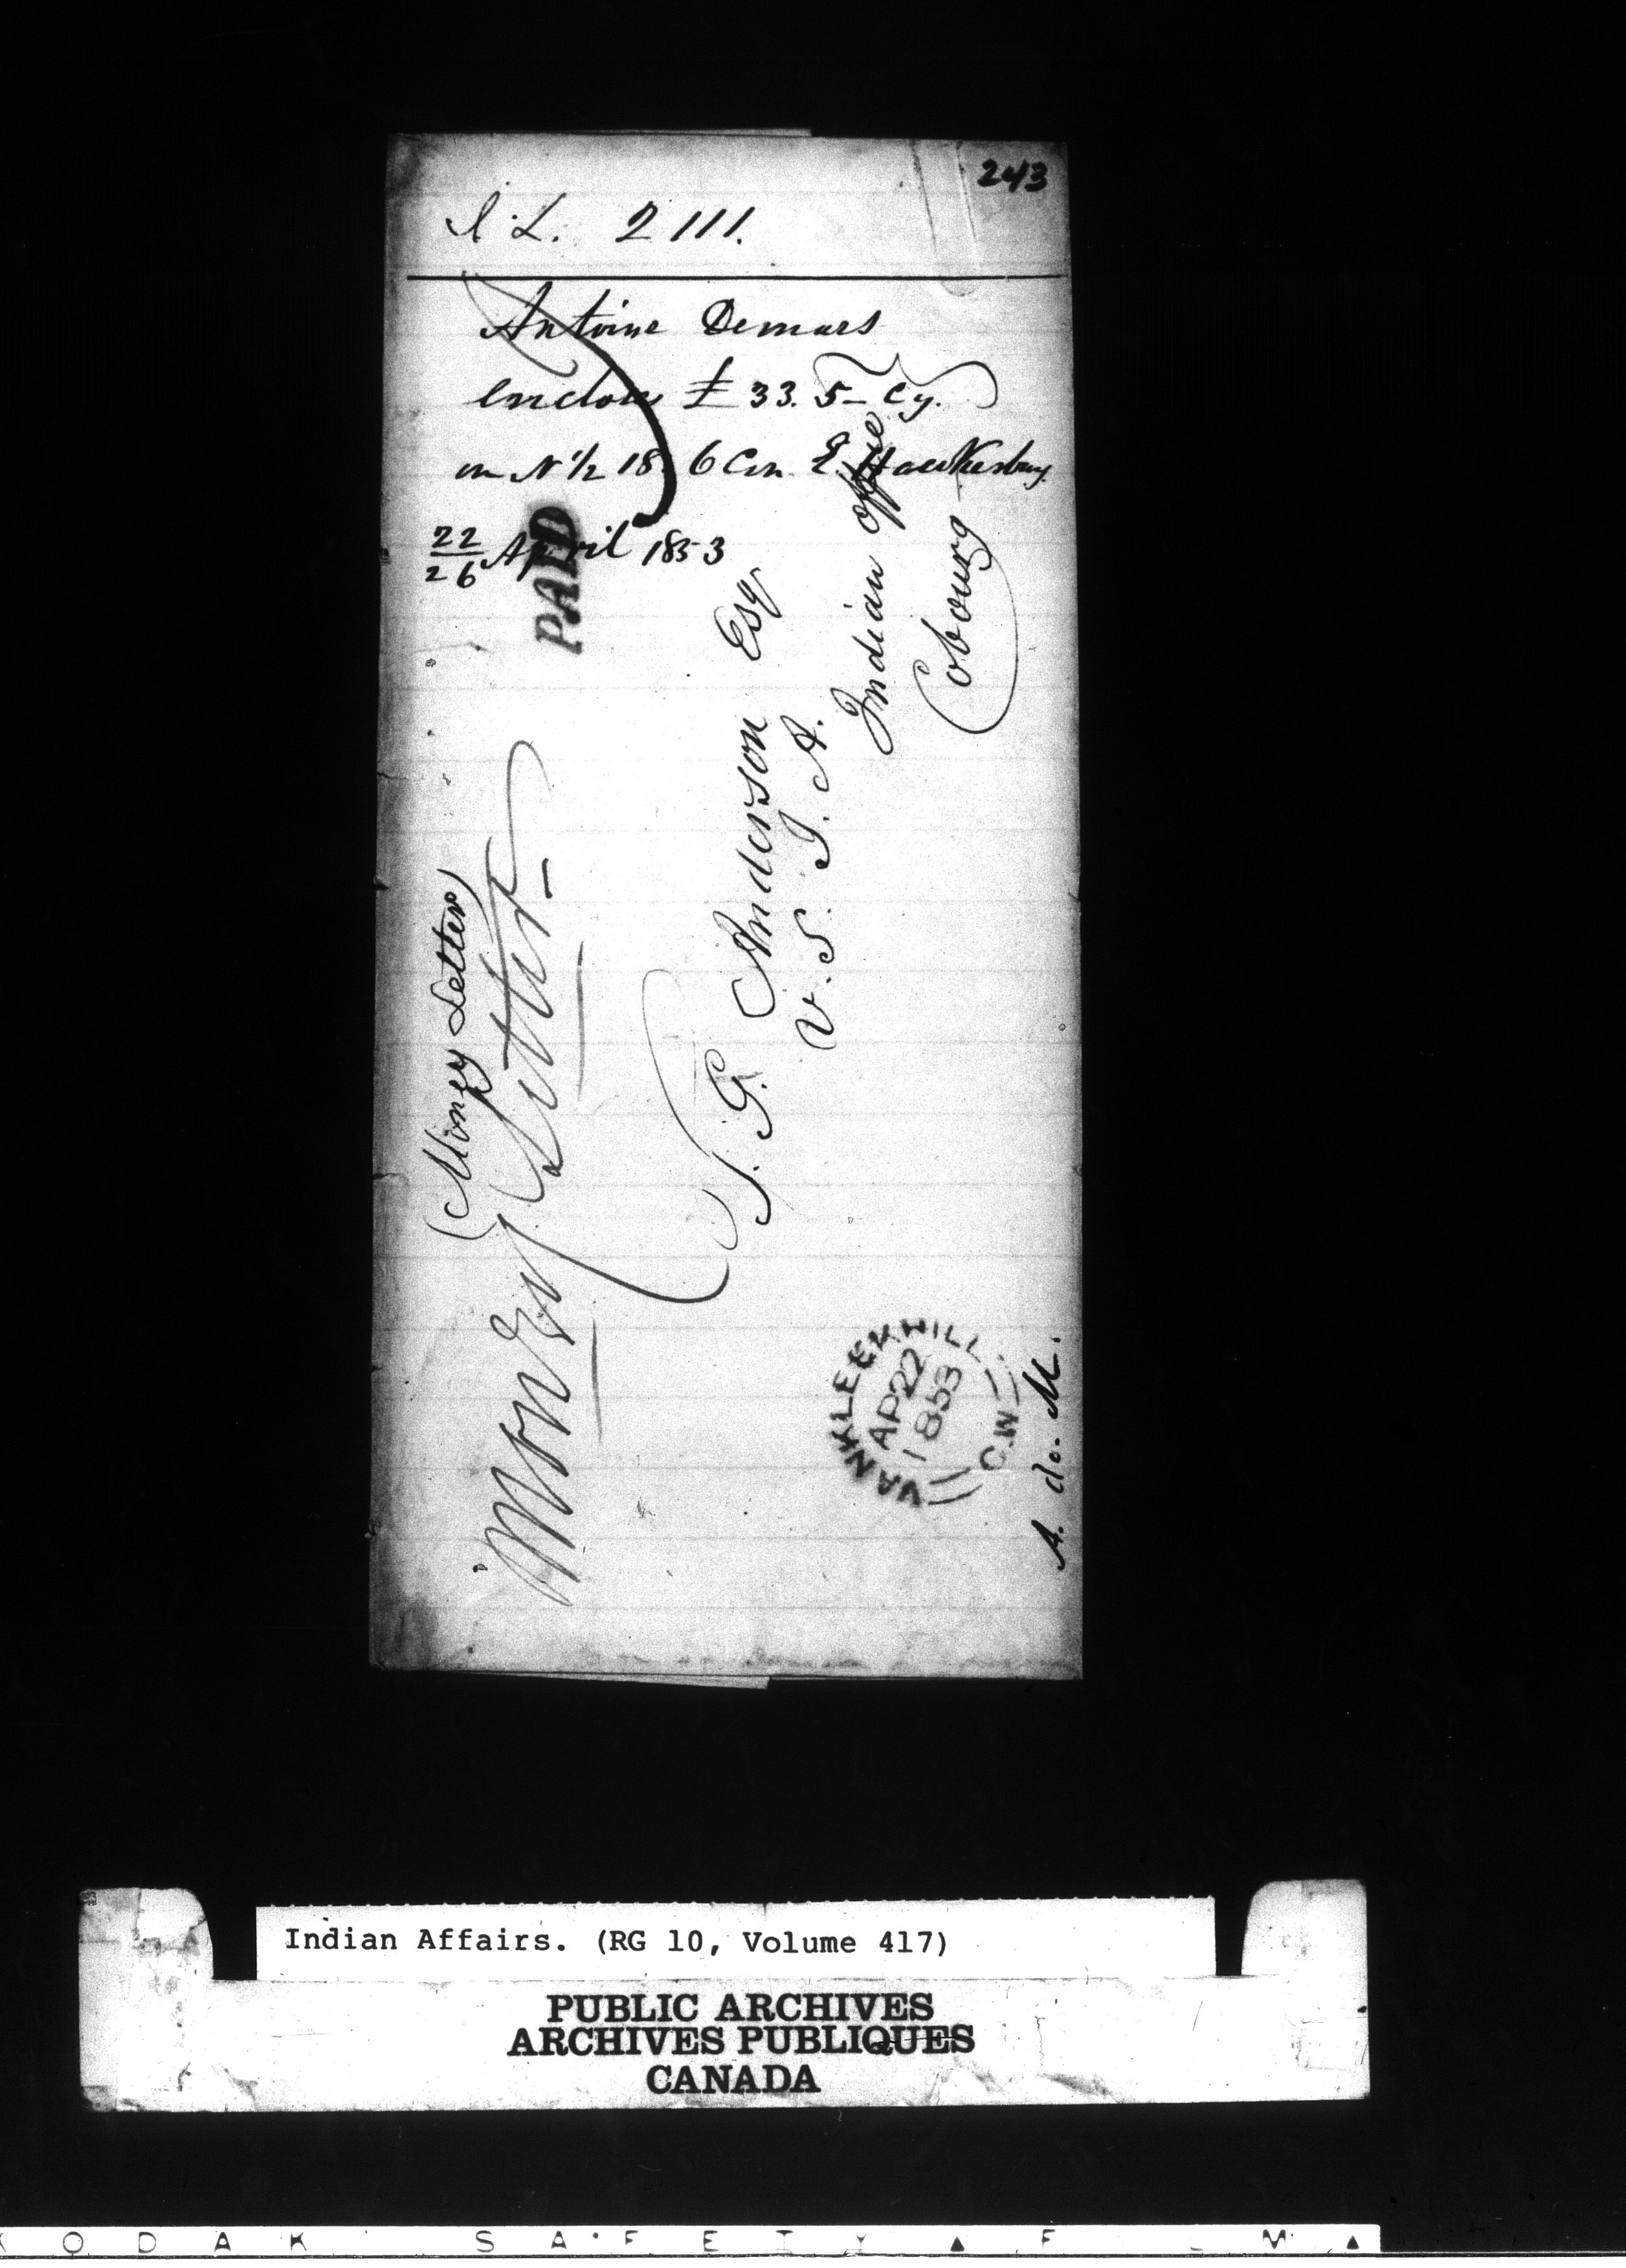 243
I L. 2111.
Antoine Demars
encloses £ 33. 5 - Cy.
on N ½ 18 6 Con E. Hawkesbury
22/26 April 1853
PAID
(Money Letter)
Money Letter -
T. G. Anderson Esqr
V. S. I. A.
Indian Office
Cobourg
VANKLEEKHILL
AP 22
1853
C.W
A. de. M.
Indian Affairs. (RG 10, Volume 417)
PUBLIC ARCHIVES
ARCHIVES PUBLIQUES
CANADA
KODAK SAFETY ▲ F L M ▲